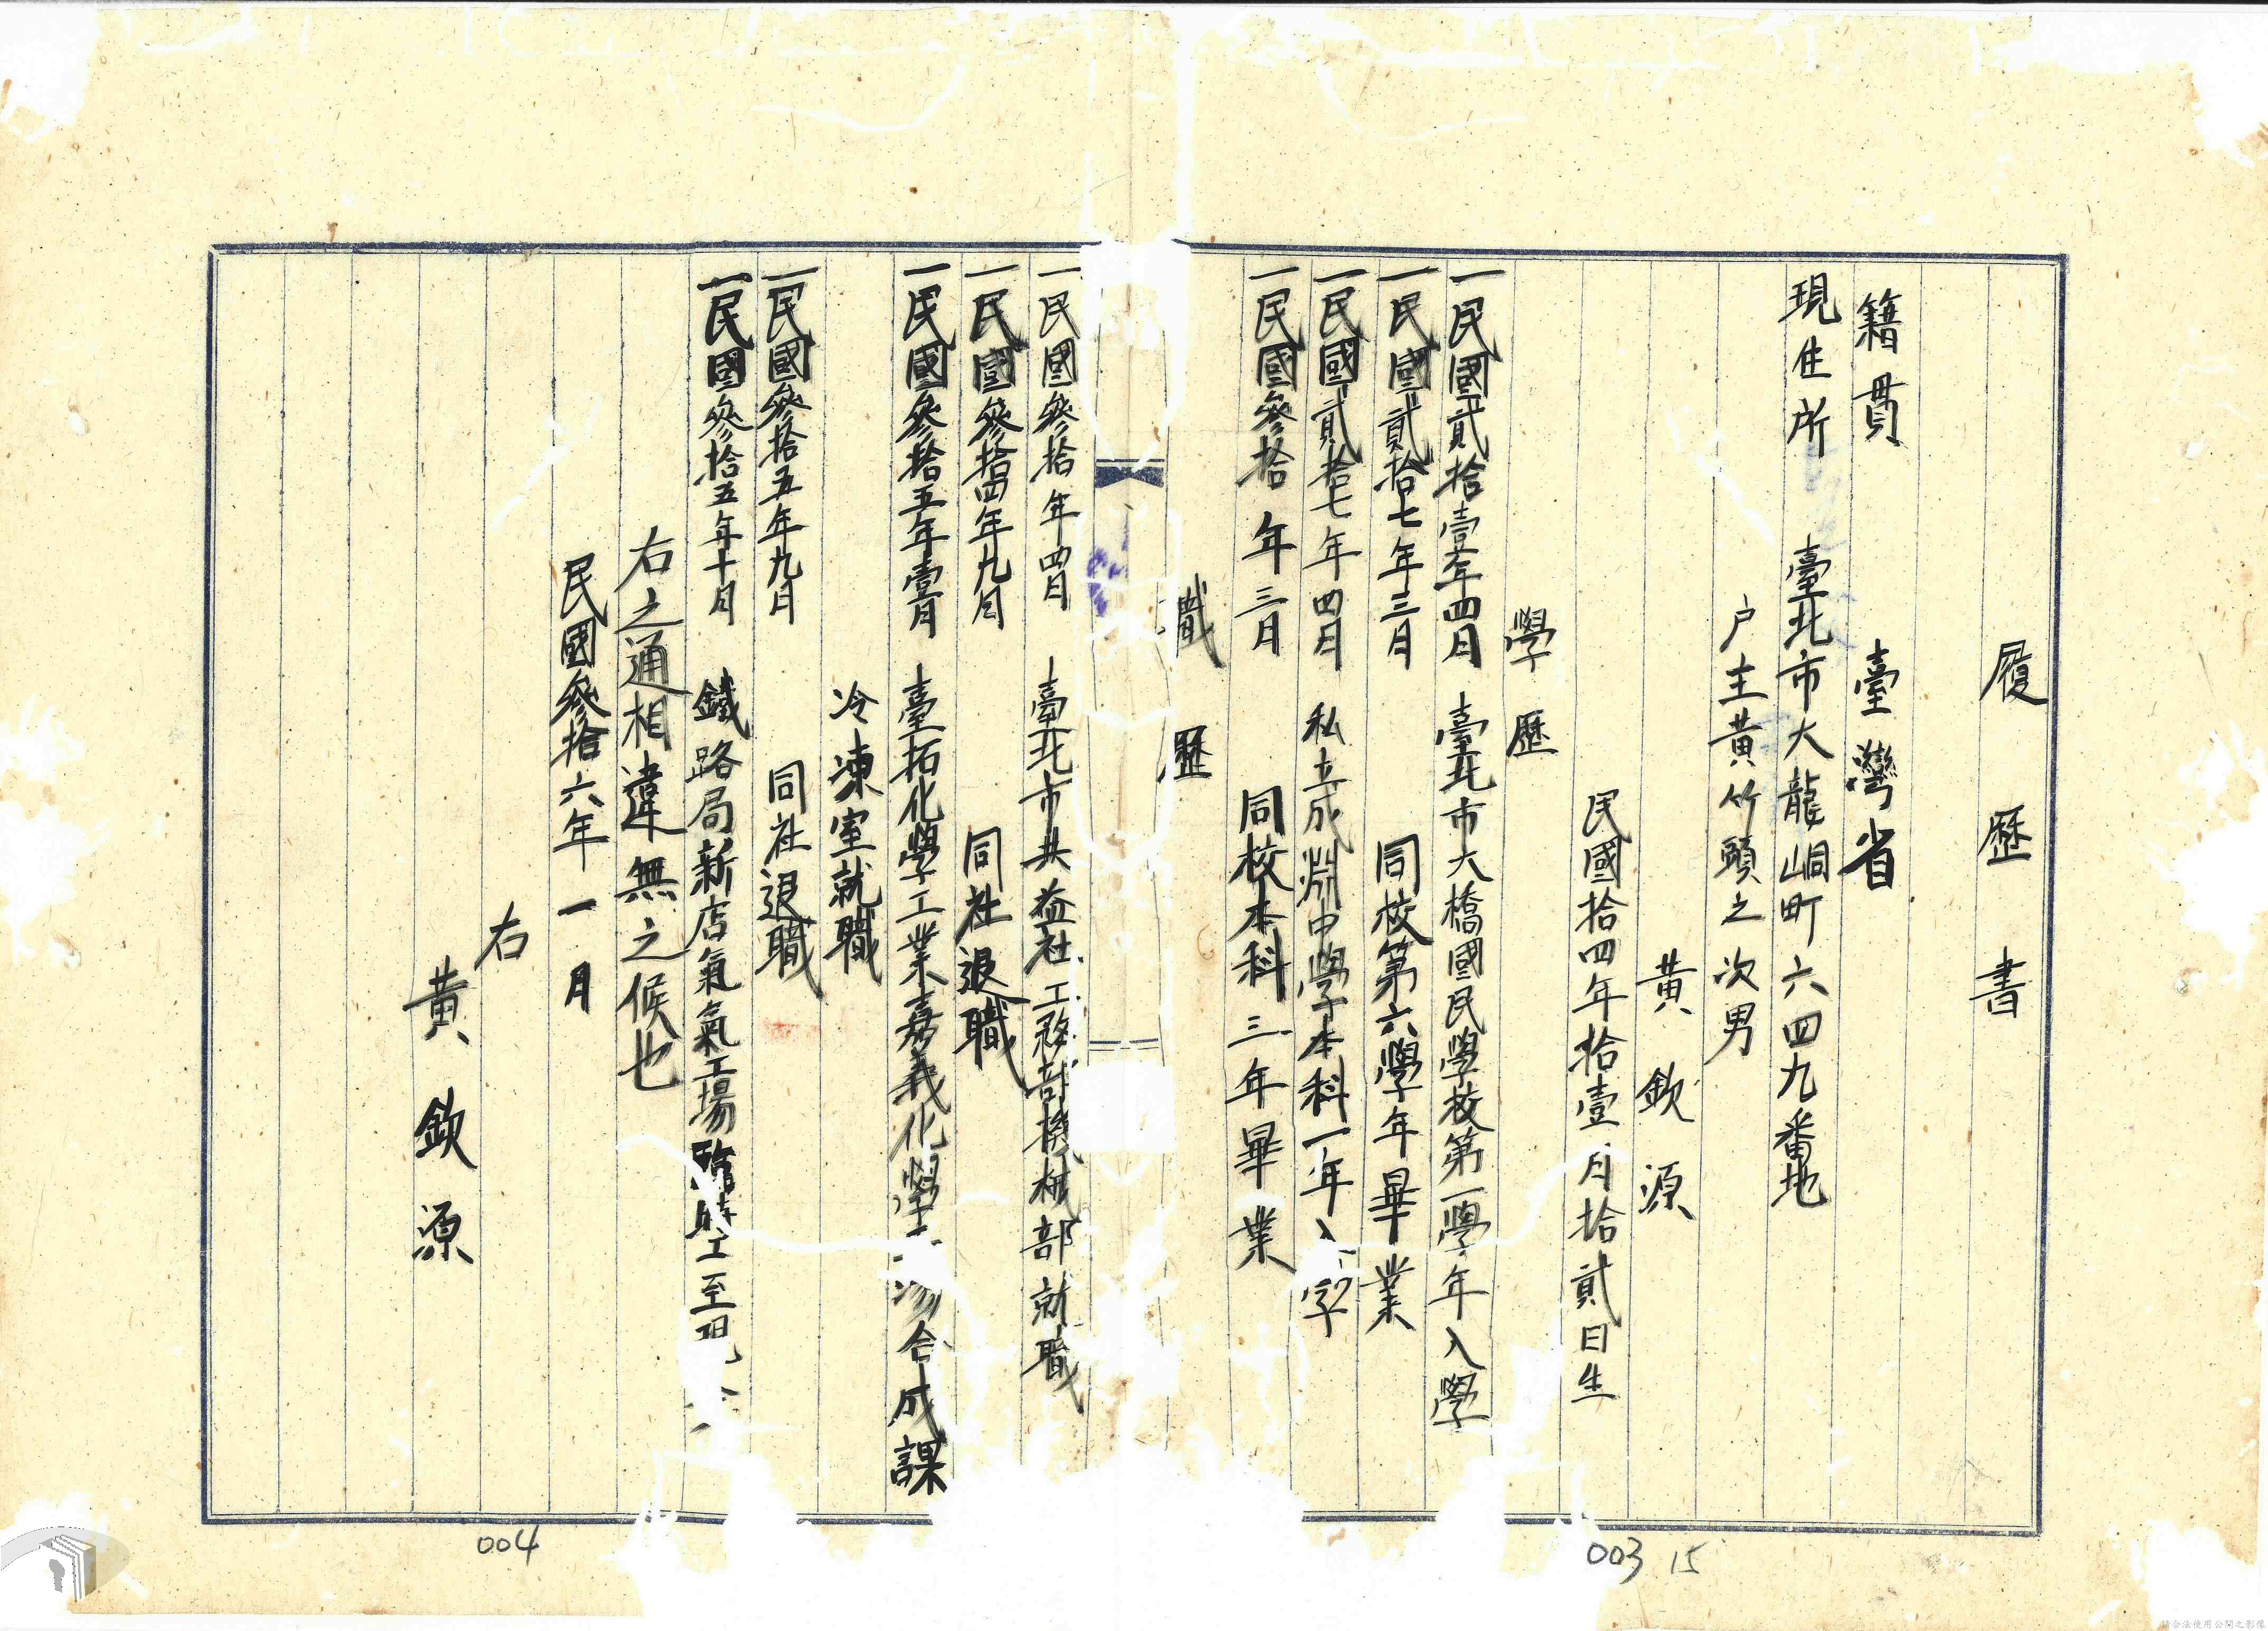 履歷書
籍貫 臺灣省
現住所 臺北市大龍峒町六四九番地
户主黃竹頭之次男
黃欽源
民國拾四年拾壹月拾貳日生
學歷
一民國貳拾壹年四月 臺北市大橋國民學校第一學年入學
一民國貳拾七年三月 同校第六學年畢業
一民國貳拾七年四月 私立成淵中學本科一年入学
一民國參拾年三月 同校本科三年畢業
職歷
一民國參拾年四月 臺北市共益社工務部機械部就職
一民國參拾四年九月 同社退職
一民國參拾五年壹月 臺拓化學工業嘉義化學工場合成課
冷凍室就職
一民國參拾五年九月 同社退職
一民國參拾五年十月 鐵路局新店氣氣工場臨時工至現
右之通相違無之候也
民國參拾六年一月
右
黃欽源
003 15
004